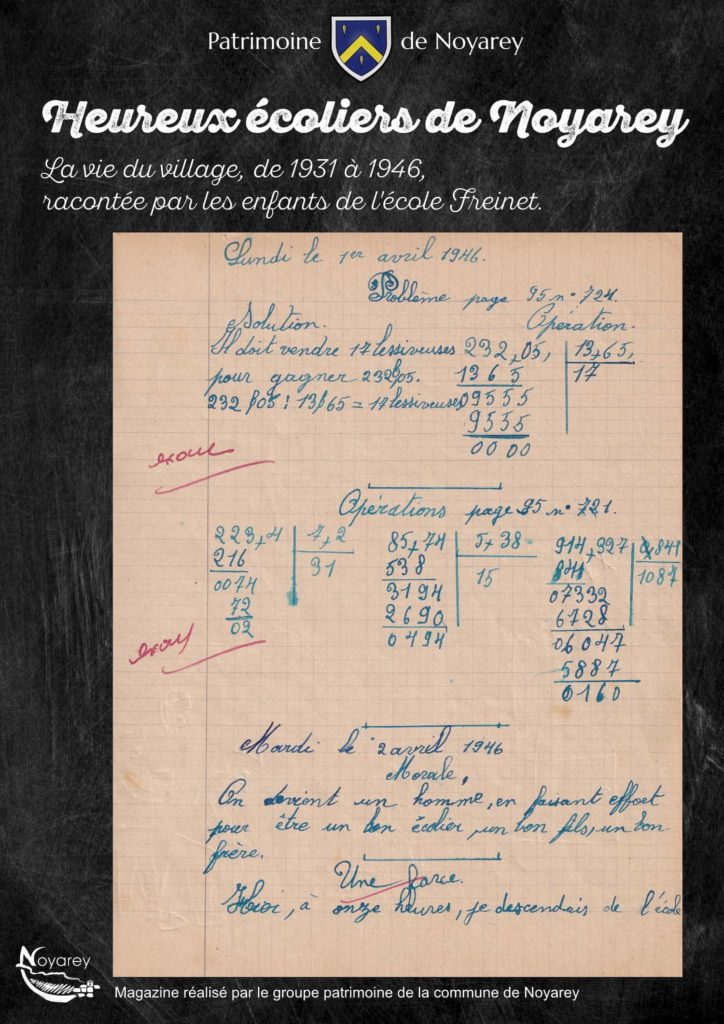 Patrimoine de Noyarey
Heureux écoliers de Noyarey
La vie du village, de 1931 à 1946,
racontée par les enfants de l'école Freinet.
Lundi le 1er avril 1946.
Problème page 95 n° 724.
Solution. Opération.
Il doit vendre 17 lessiveuses
pour gagner 232f05.
232f05 : 13f65 = 17 lessiveuses
232,05, 13,65,
1365 17
09555
9555
0000
exact
Opérations page 95 n° 721.
223,4 7,2
216 31
0074
72
02
85,74 5,38
538 15
3194
2690
0494
914,327 0,841
841 1087
07332
6728
06047
5887
0160
exact
Mardi le 2 avril 1946
Morale.
On devient un homme, en faisant effort
pour être un bon écolier, un bon fils, un bon
frère.
Une farce.
Hier, à onze heures, je descendais de l'école
Noyarey
Magazine réalisé par le groupe patrimoine de la commune de Noyarey